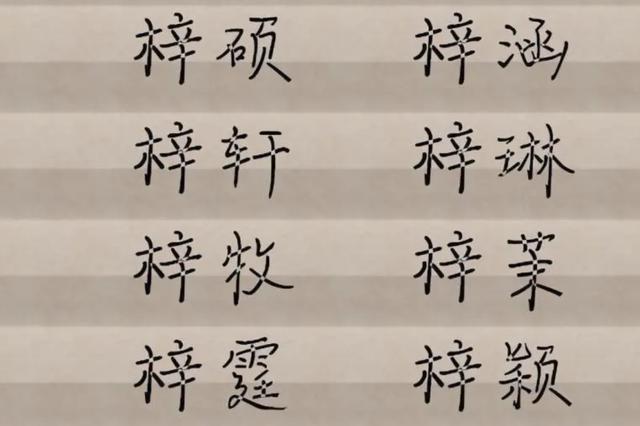 梓硕 梓涵
梓轩 梓琳
梓牧 梓茉
梓霆 梓颖